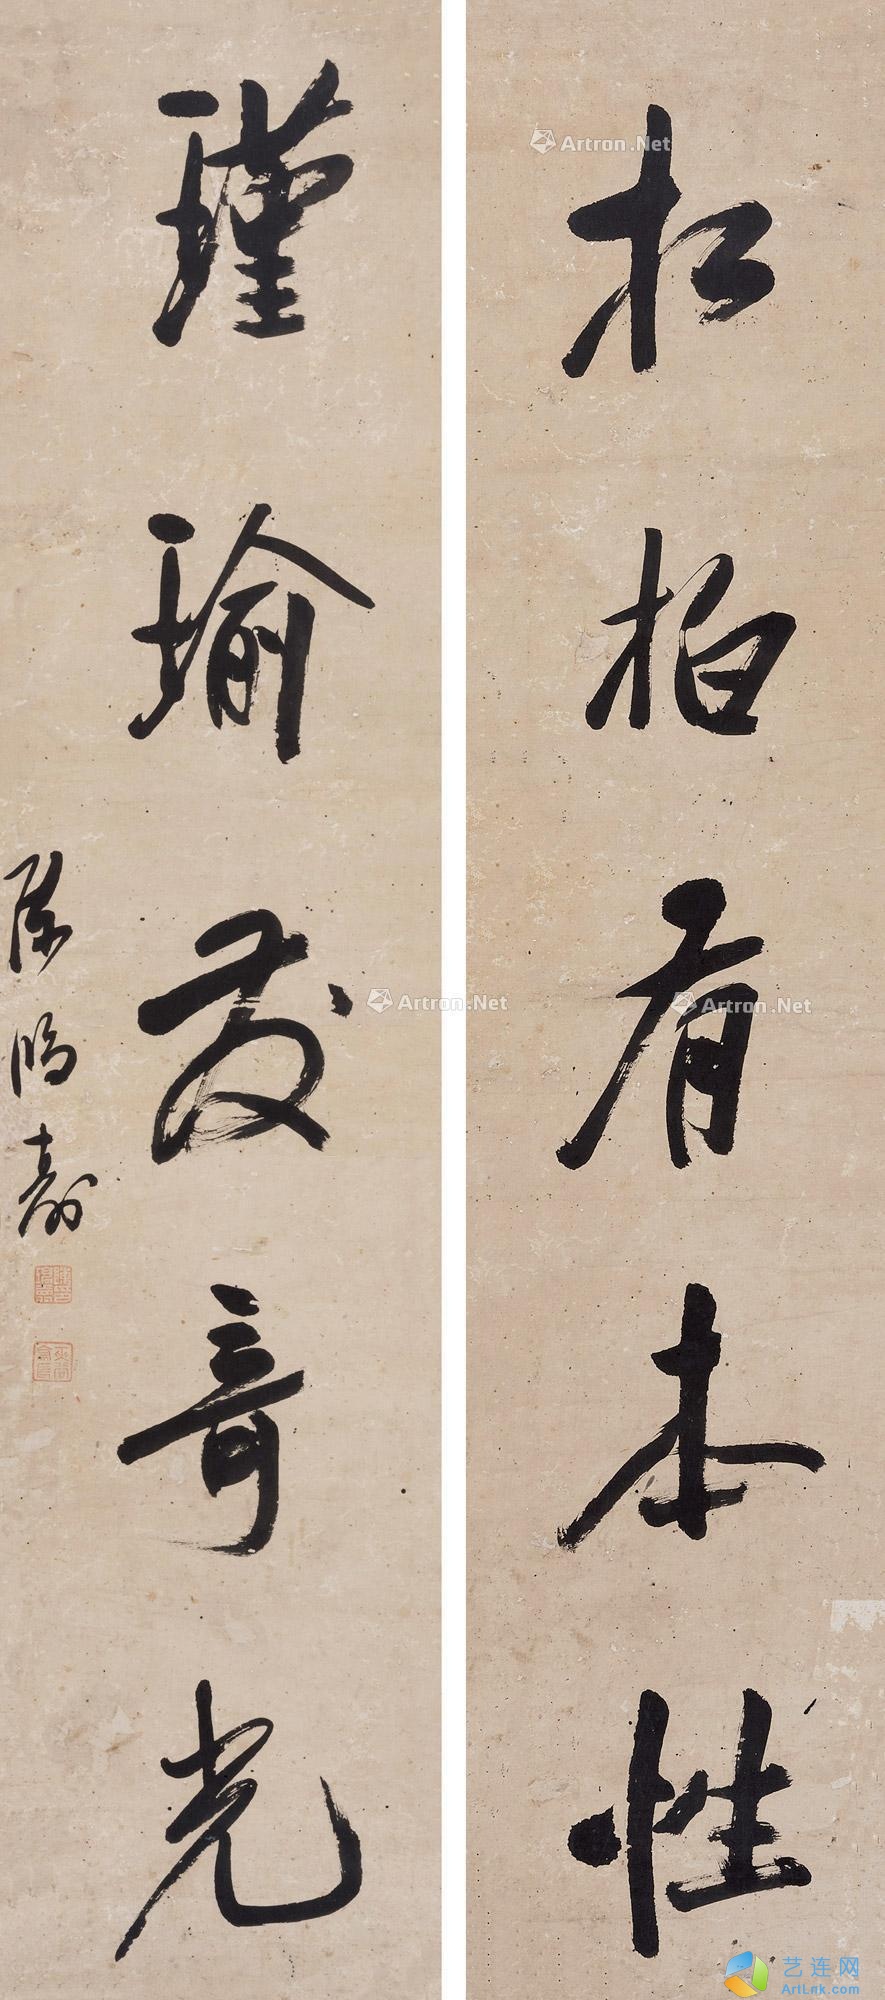 松柏有本性
瑾瑜發奇光
陳鴻壽
Artron.Net
Artron.Net
Artron.Net
艺连网
ArtLnk.com